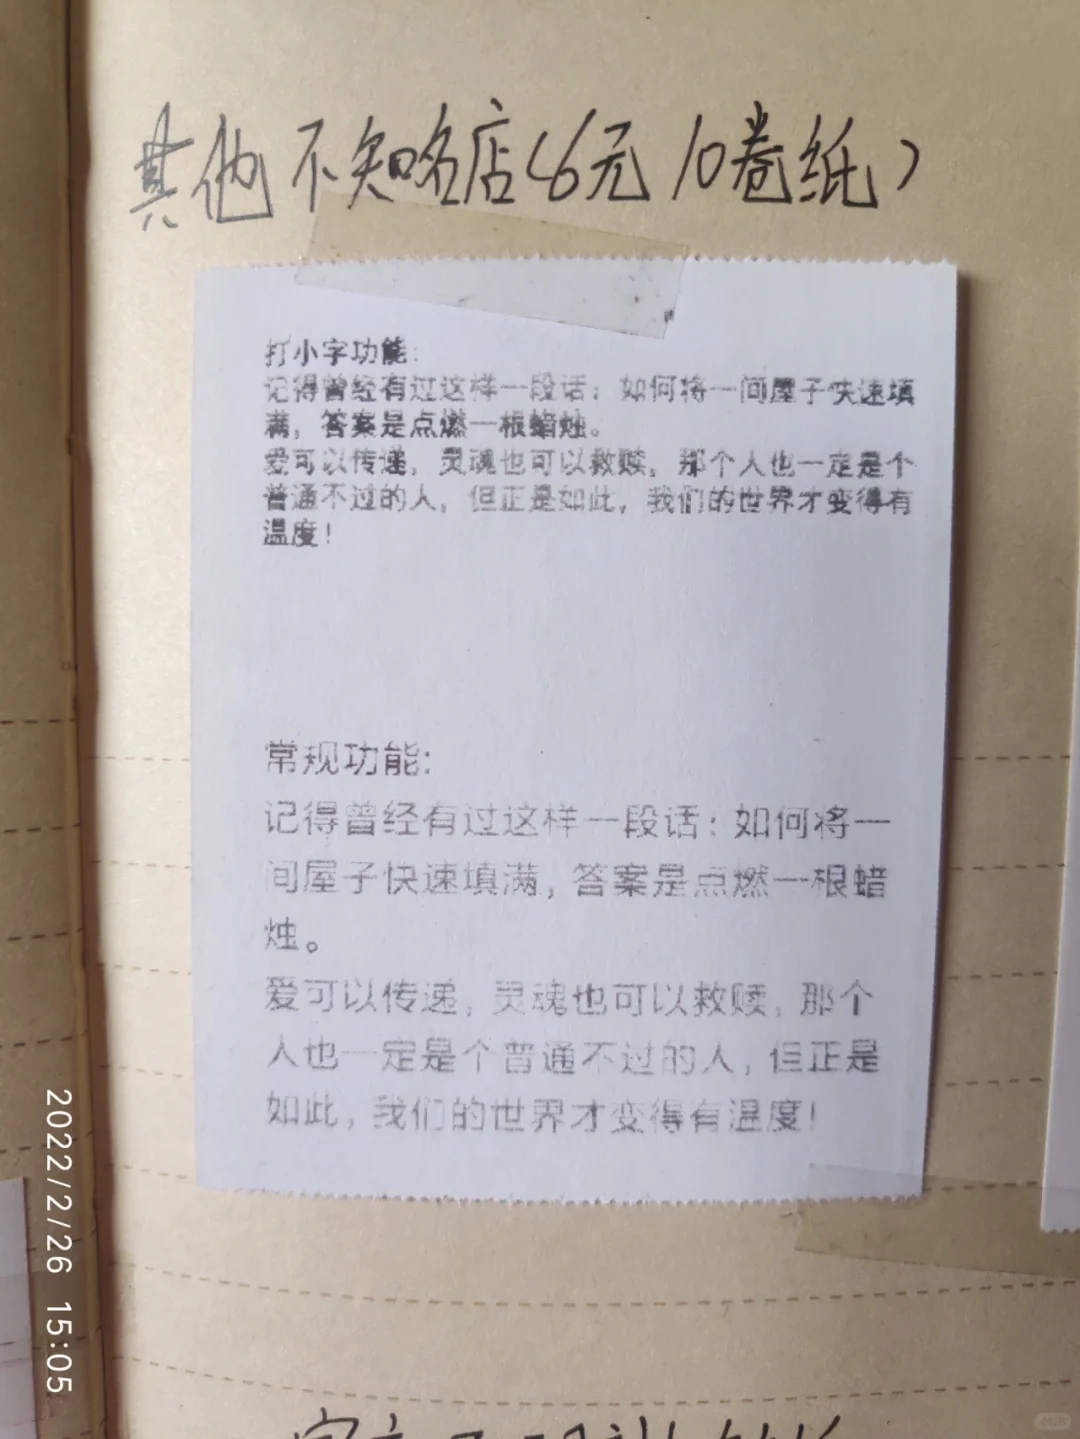 其他不知名店(6元10卷纸)
打小字功能:
记得曾经有过这样一段话:如何将一间屋子快速填
满,答案是点燃一根蜡烛。
爱可以传递,灵魂也可以救赎,那个人也一定是个
普通不过的人,但正是如此,我们的世界才变得有
温度!
常规功能:
记得曾经有过这样一段话:如何将一
间屋子快速填满,答案是点燃一根蜡
烛。
爱可以传递,灵魂也可以救赎,那个
人也一定是个普通不过的人,但正是
如此,我们的世界才变得有温度!
2022/2/26 15:05